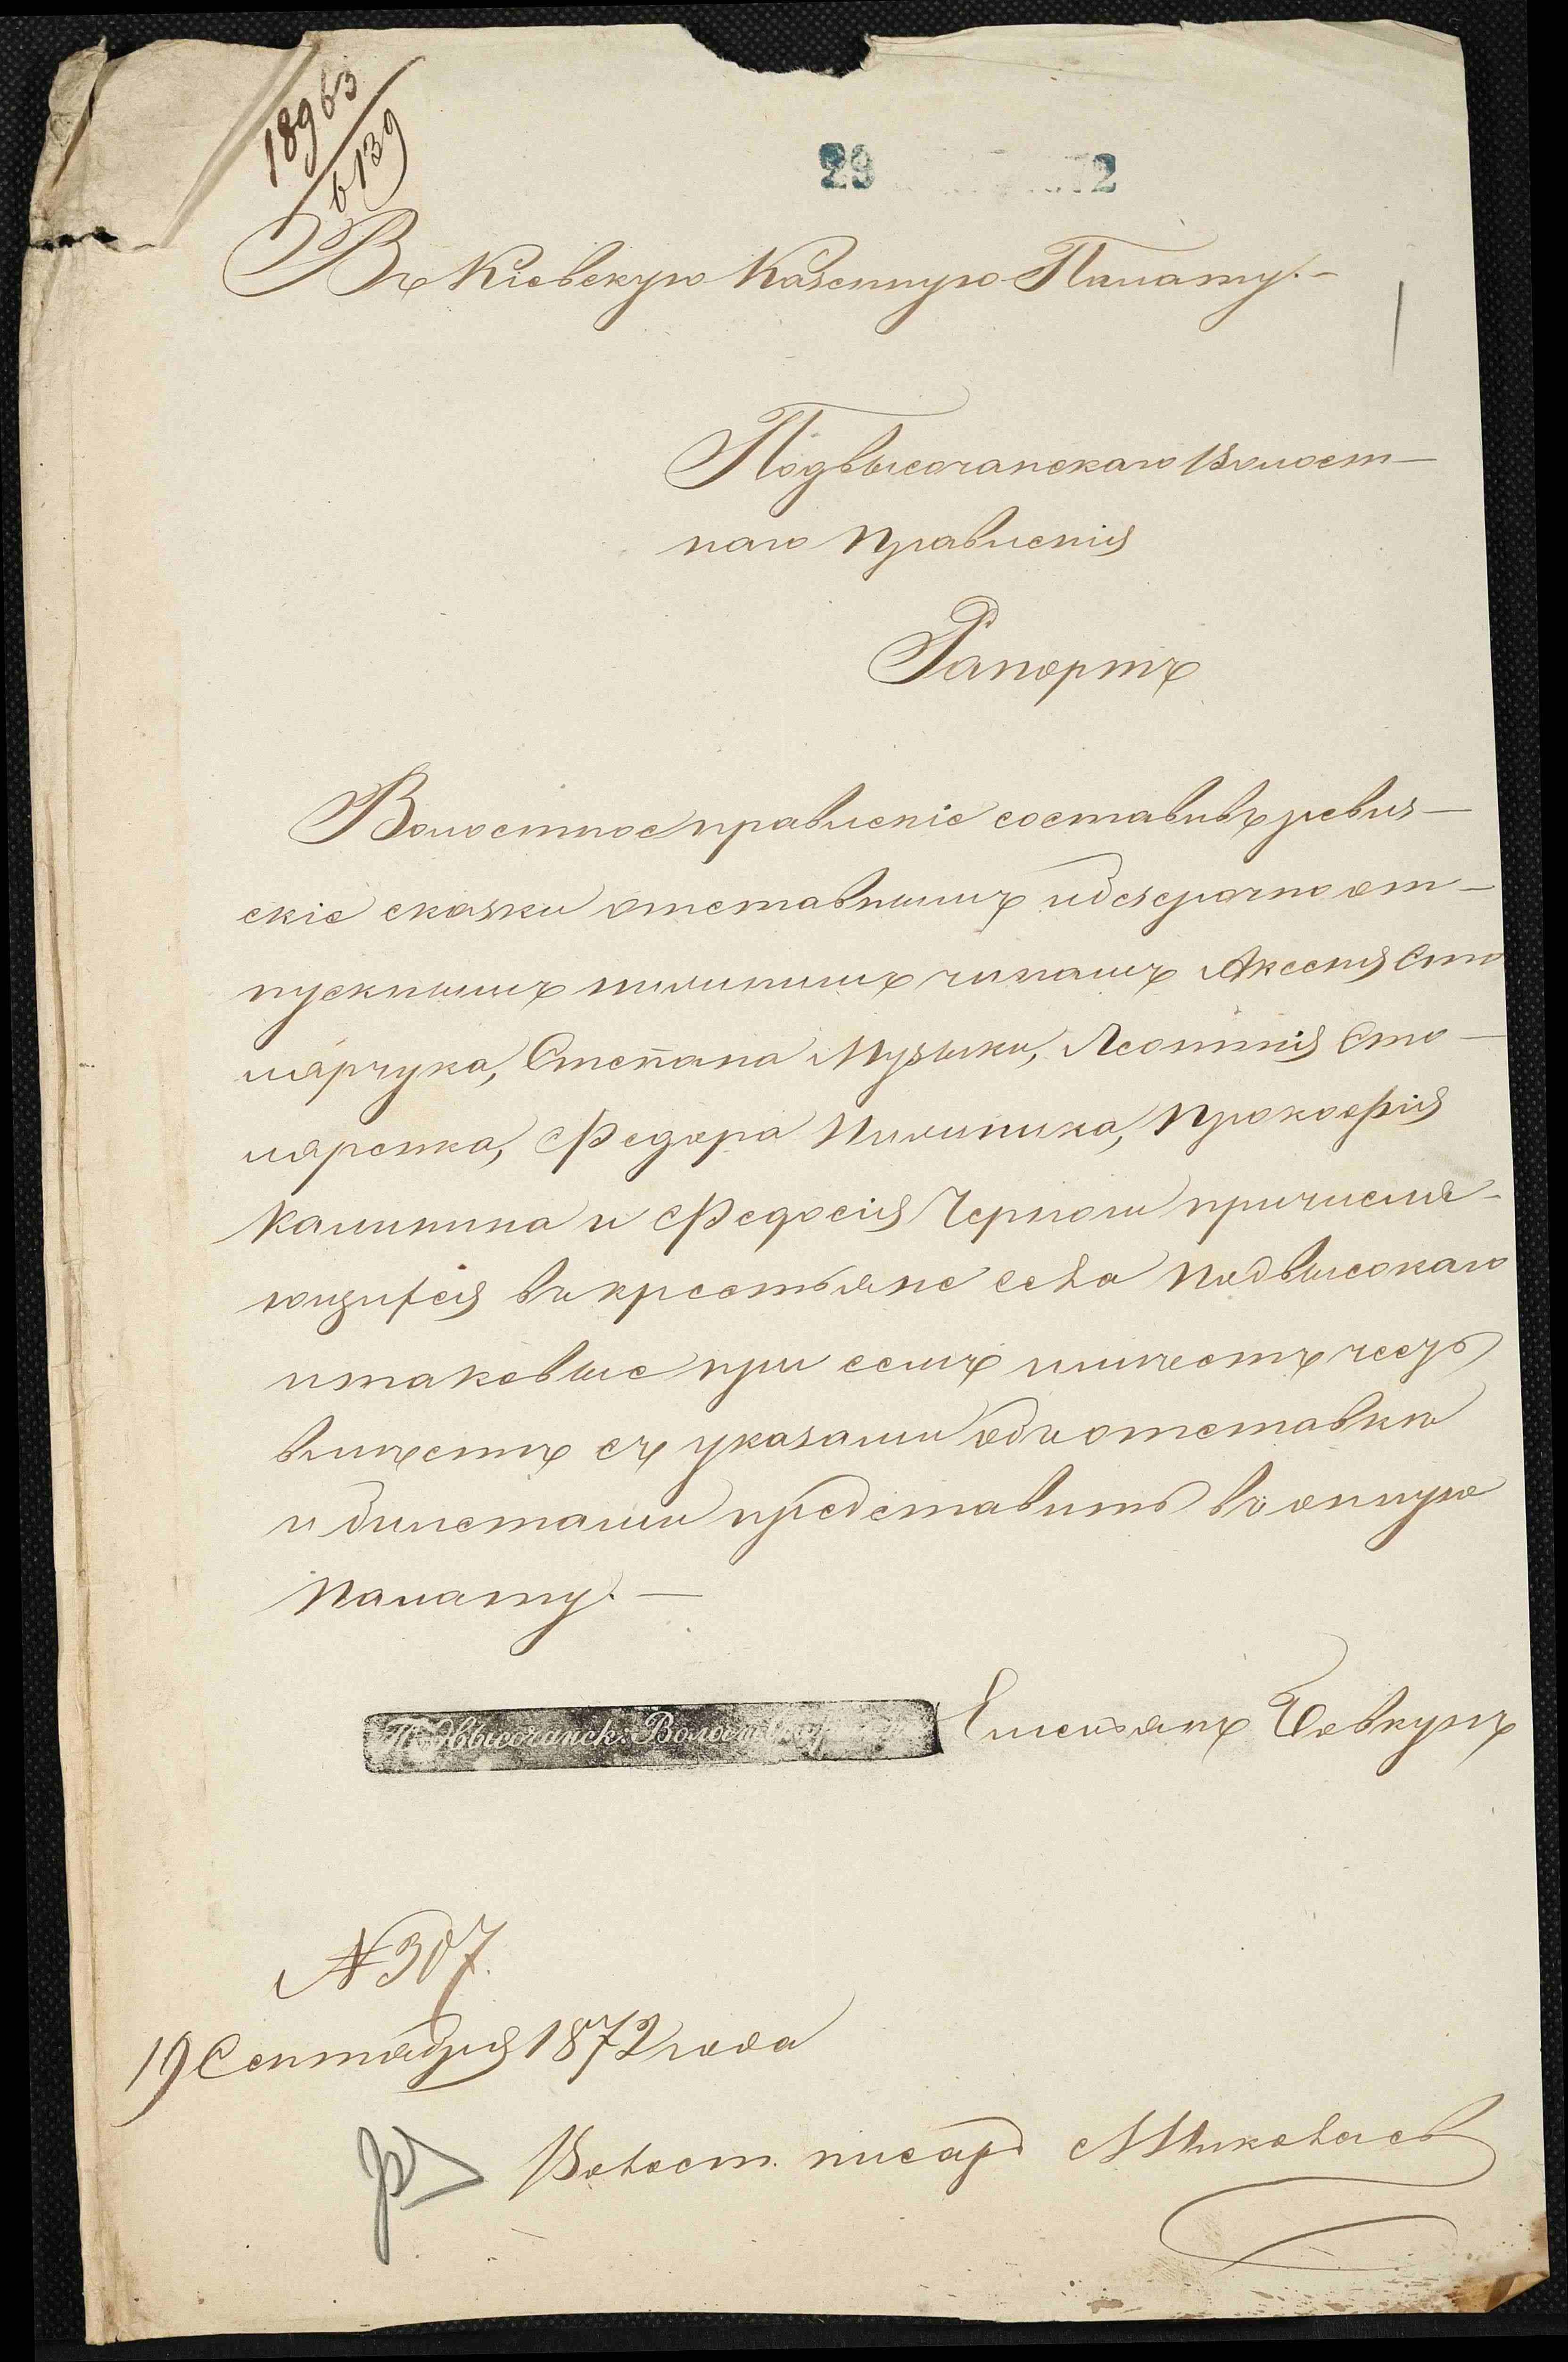 18963
6139
29 72
Въ Кіевскую Казенную Палату.-
Подвысочанскаго Волост-
наго Правленія
Рапортъ
Волостное правленіе составивъ ревиз-
скіе сказки отставнымъ и безсрочно от-
пускнымъ нижнимъ чинамъ Аксенія Сто
лярчука, Степана Музыки, Леонтія Сто-
ляренка, Федора Пилипика, Прокофія
Калинина и Федосія Черного причисля-
ющихся въ крестьяне села Подвысокаго
и таковые при семъ имѣетъ честь
вмѣстѣ съ указами объ отставкѣ
и билетами представить въ оную
Палату.-
Подвысочанск: Волост
Емельянъ Бовкунъ
№ 307.
19 Сентября 1872 года
Волост. писарь Николаевъ